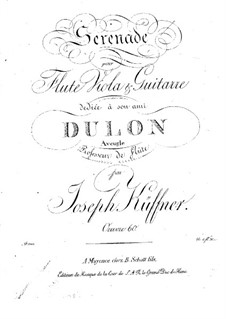 Serenade
pour
Flûte Viola & Guitarre
dediée à son ami
DULON
Aveugle
Professeur de Flûte
par
Joseph Küffner.
Oeuvre 60
A Mayence chez B. Schott fils,
Editeurs de Musique de la Cour de S. A. R. le Grand Duc de Hesse